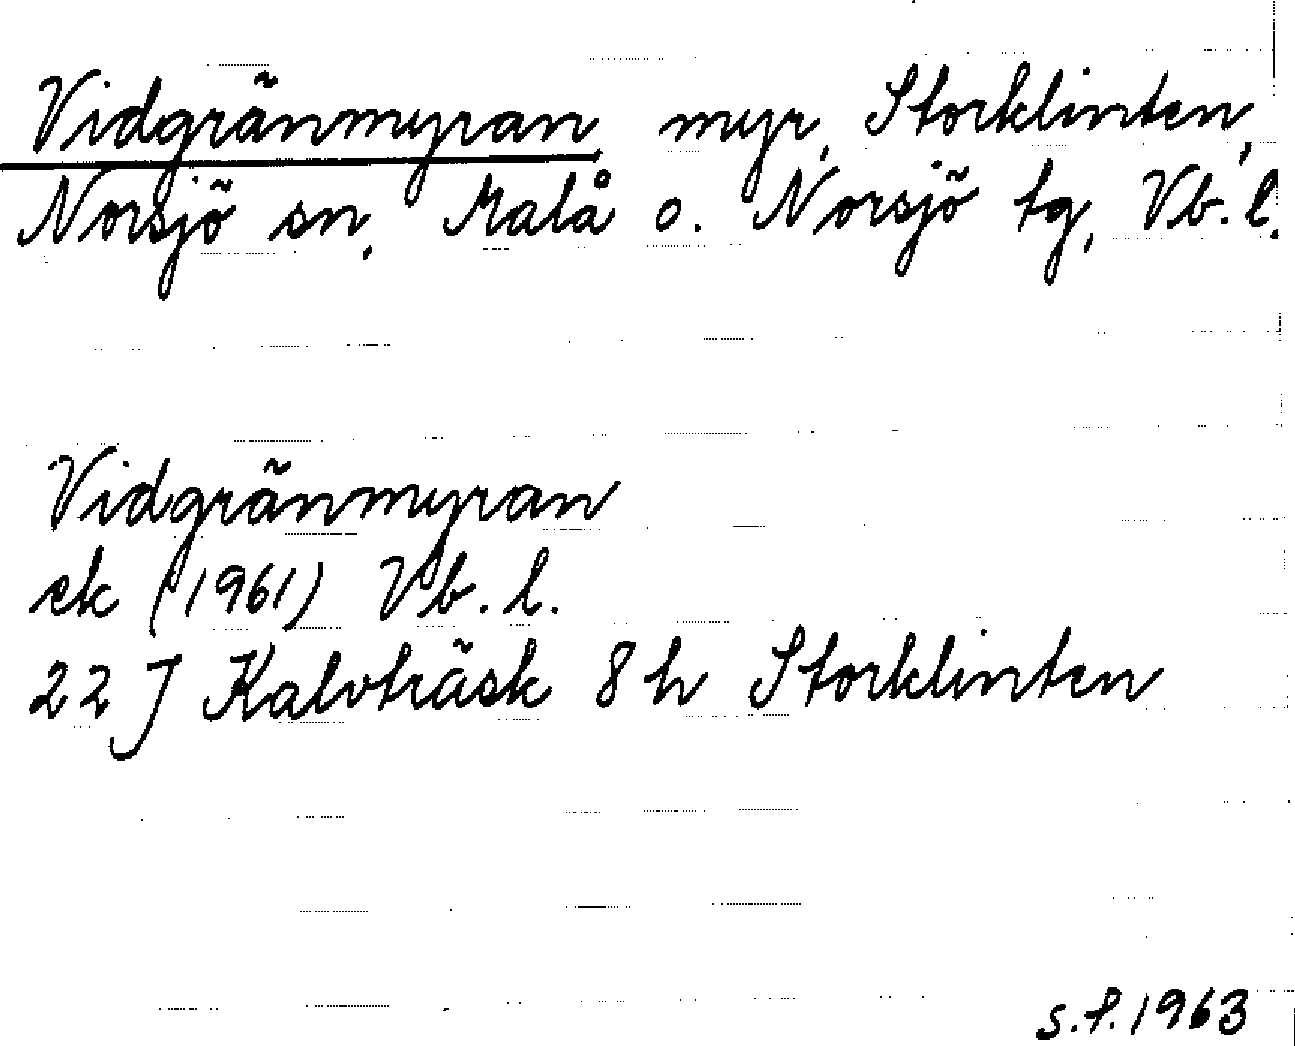 Vidgränmyran, myr, Storklinten,
Norsjö sn, Malå o. Norsjö tg, Vb. l.
Vidgränmyran
ek (1961) Vb. l.
22 J Kalvträsk 8 h Storklinten
s.f. 1963